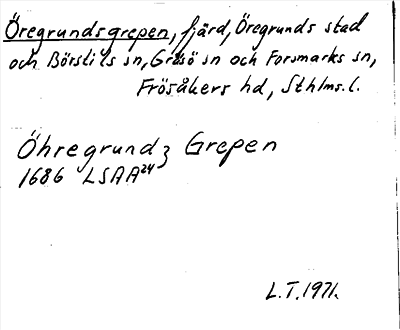 Öregrundsgrepen, fjärd, Öregrunds stad
och Börstils sn, Gräsö sn och Forsmarks sn,
Frösåkers hd, Sthlms. l.
Öhregrundz Grepen
1686 LSAA24
L.T. 1971.